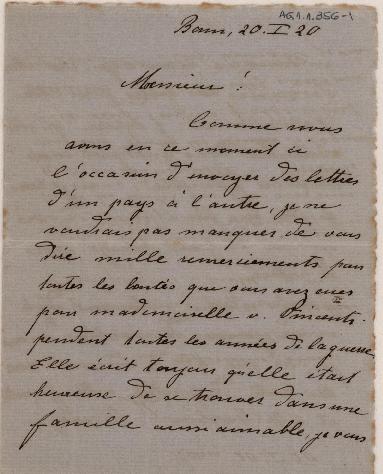 AG.1.1.356-1
Bonn, 20. I 20
Monsieur!
Comme nous
avons en ce moment ci
l'occasion d'envoyer des lettres
d'un pays à l'autre, je ne
voudrais pas manquer de vous
dire mille remerciements pour
toutes les bontés que vous avez eues
pour mademoiselle v. Vincenti
pendent toutes les années de la guerre.
Elle écrit toujours qu'elle était
heureuse de se trouver dans une
famille aussi aimable, je vous